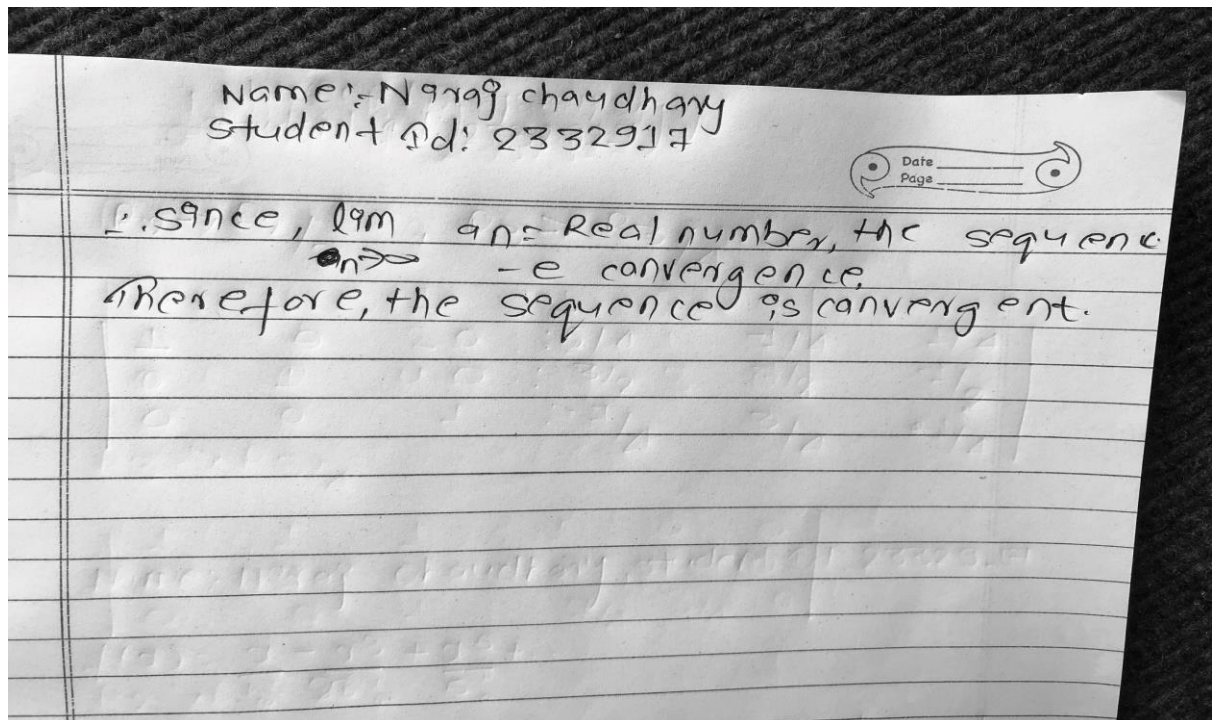 Name:- Naraj chaudhary
Student Id: 2332917
Date
Page
∴ Since, lim an = Real number, the sequenc
n→∞ -e convergence.
Therefore, the sequence is convergent.